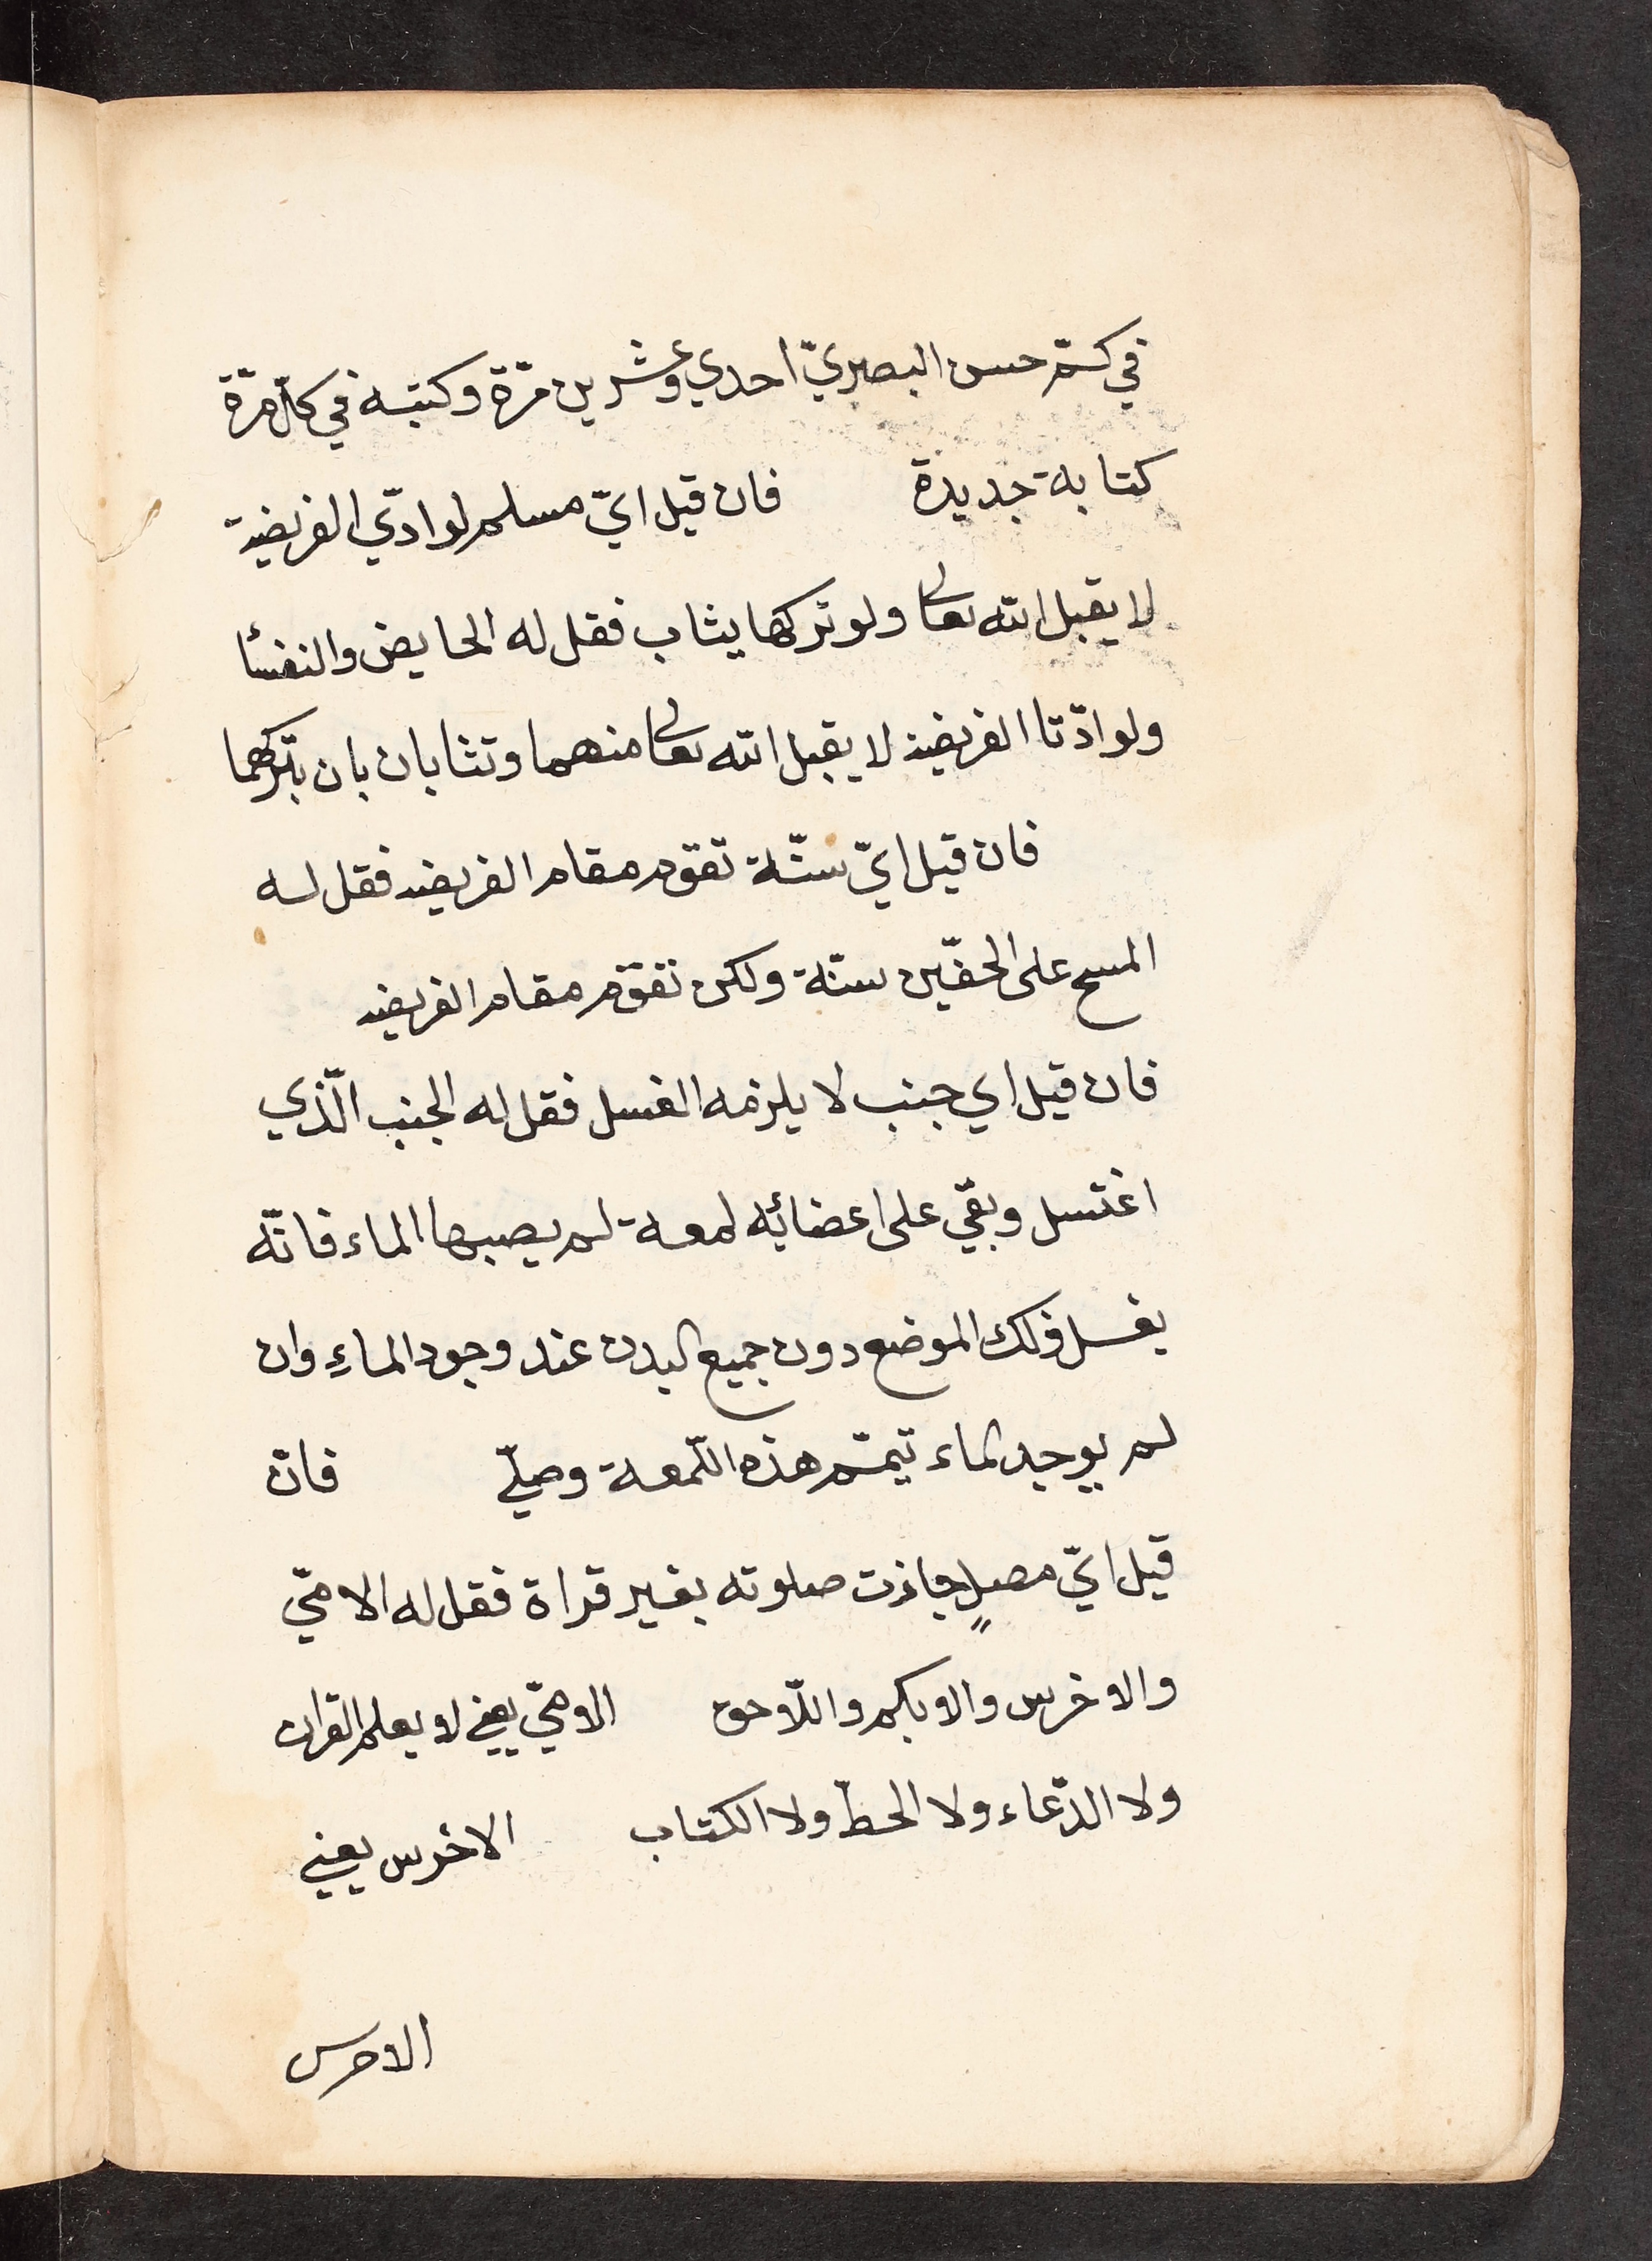 في كمّ حسن البصريّ احدي وعشرين مرّة وكتبه في كلّ مرّة
كتابة جديدة فان قيل ايّ مسلم لو ادّي الفريضة
لا يقبل الله تعالى ولو تركها يثاب فقل له الحايض والنفسأ
ولو ادّتا الفريضة لا يقبل الله تعالى منهما وتثابان بان بتركهما
فان قيل ايّ سنّة تقوم مقام الفريضة فقل له
المسح على الخفّين سنّة ولكن تقوم مقام الفريضة
فان قيل اي جنب لا يلزمه الغسل فقل له الجنب الّذي
اغتسل وبقي على اعضائه لمعة لم يصبها الماء فانّه
يغسل ذلك الموضع دون جميع البدن عند وجود الماءِ وان
لم يوجد الماء تيمّم هذه اللّمعة وصلّي فان
قيل ايّ مصلٍ جازت صلوته بغير قراة فقل له الامّيّ
والاخرس والابكم واللّاحق الامّيّ يعني لا يعلم القران
ولا الدّعاء ولا الخطّ ولا الكتاب الاخرس يعني
الاخرس